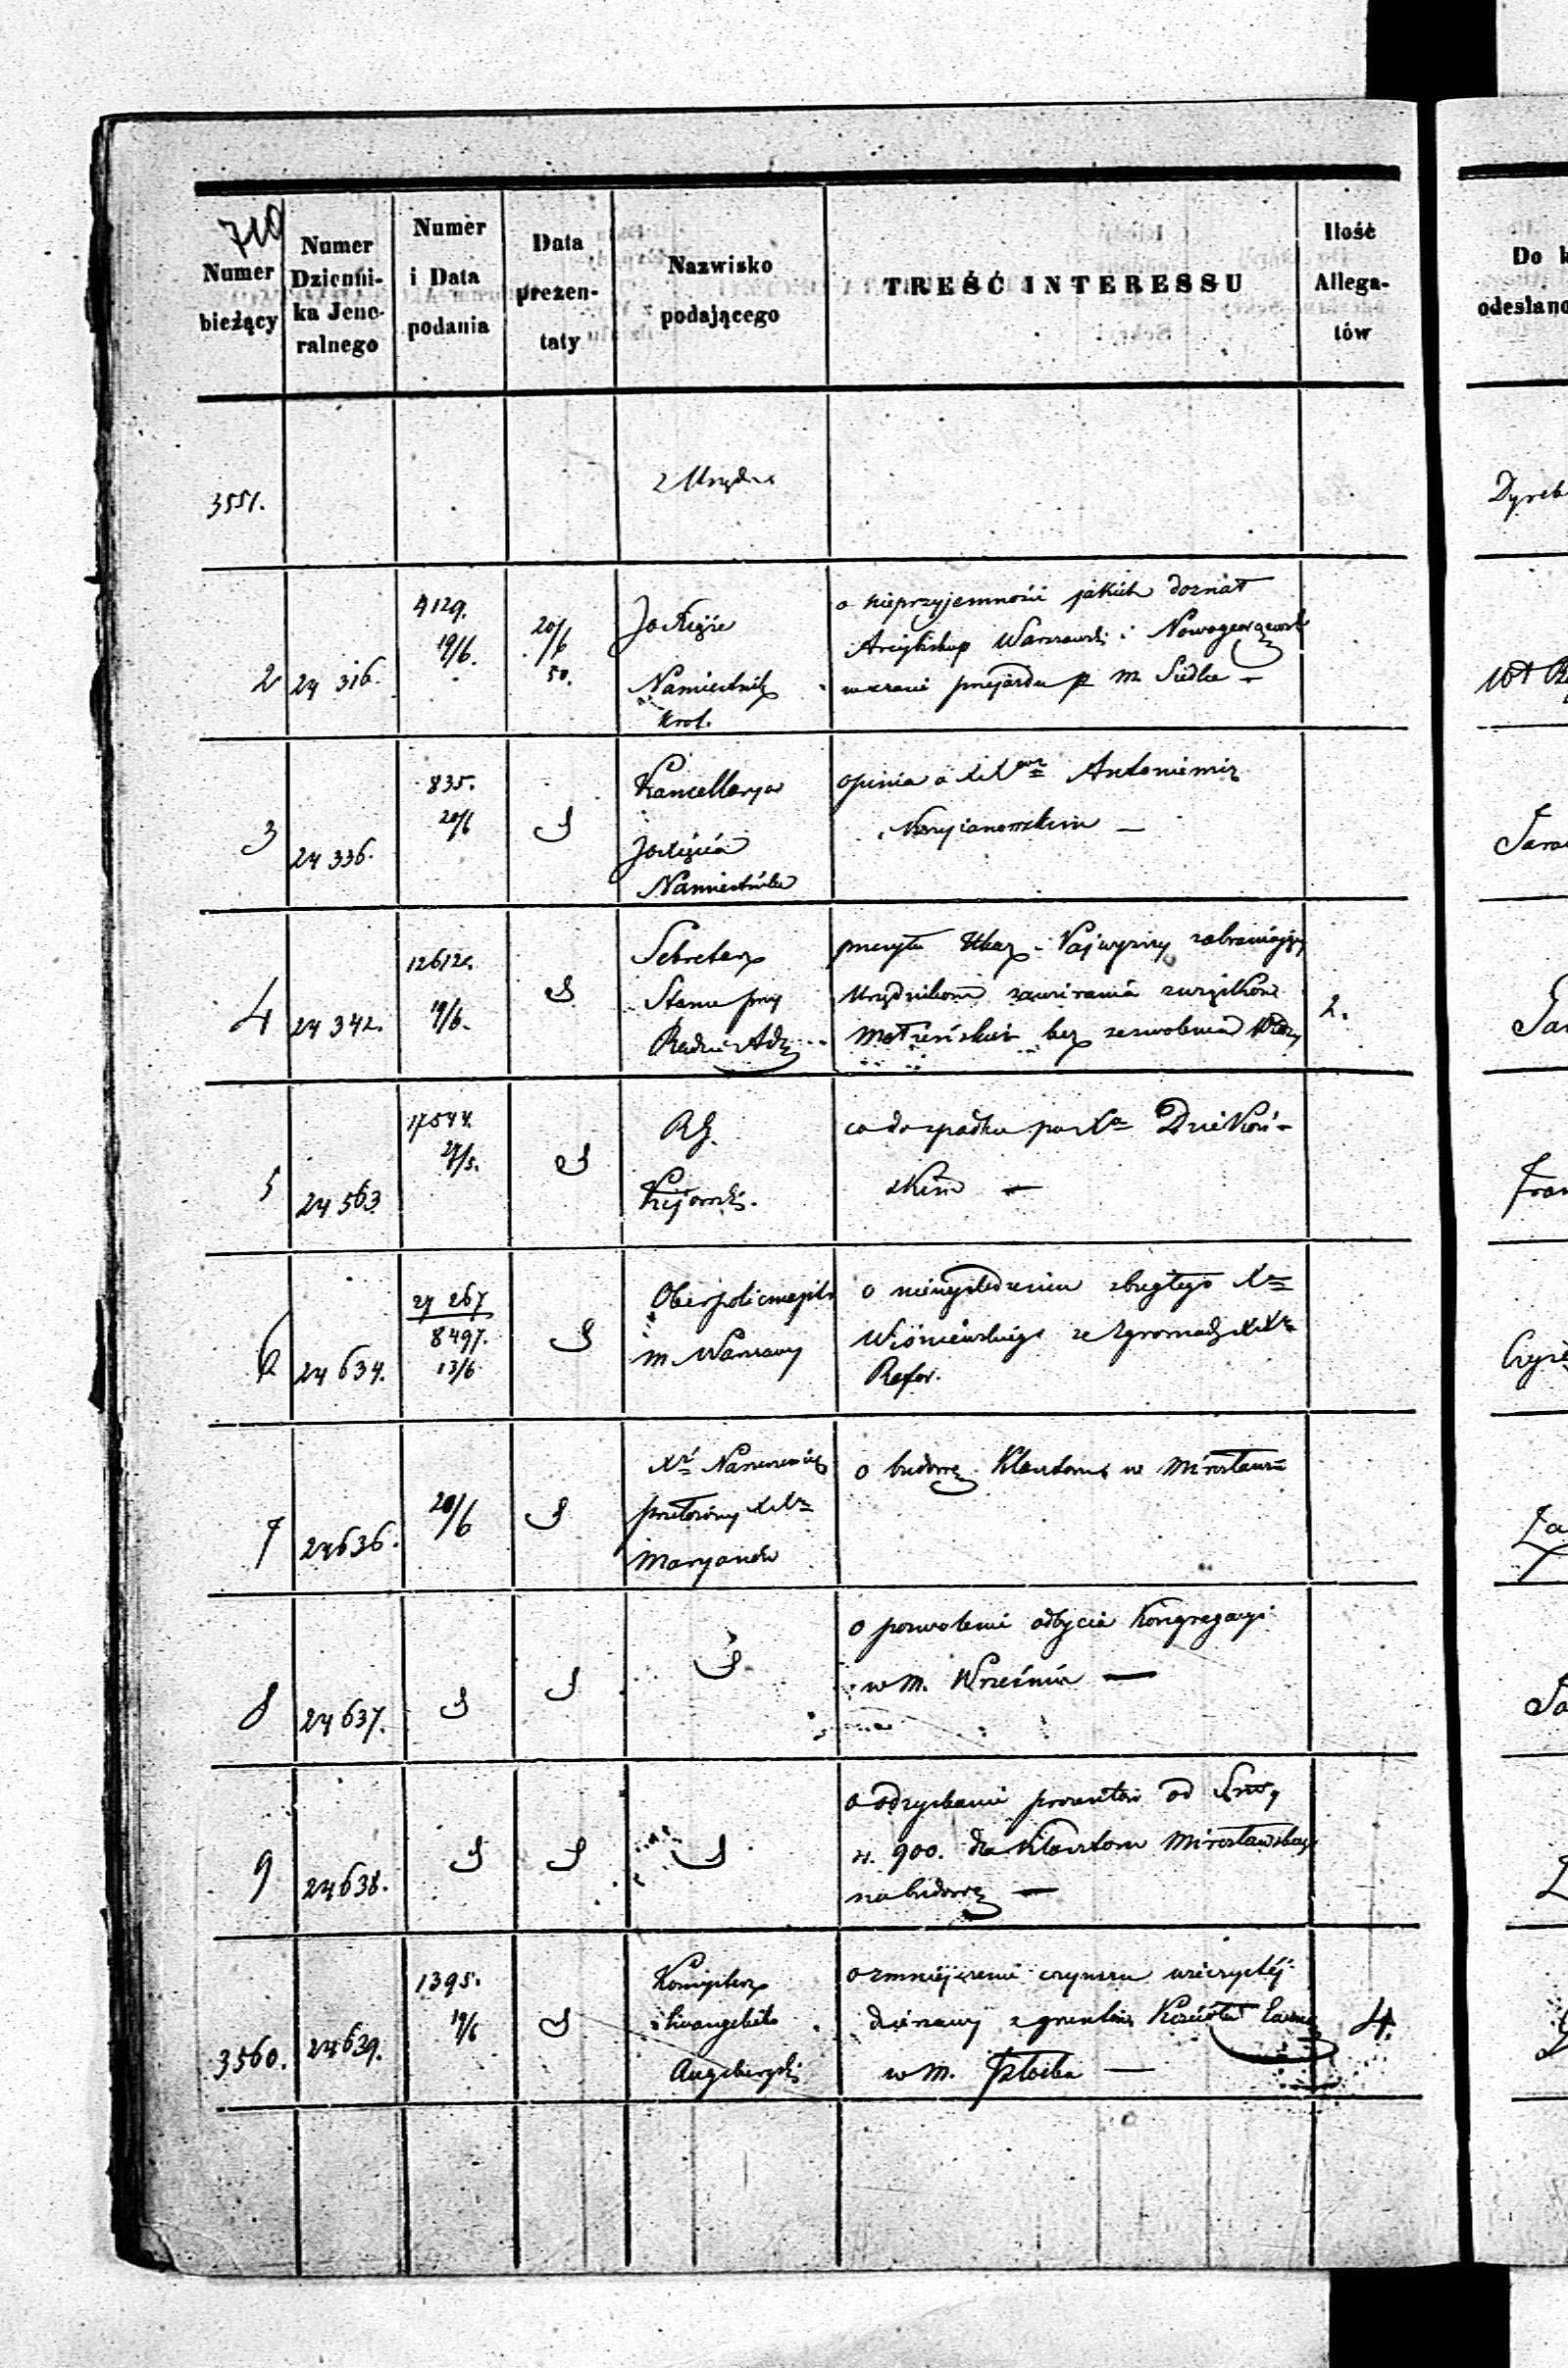 710
Numer bieżący
Numer Dzienni-ka Jene-ralnego
Numer i Data podania
Data prezen-taty
Nazwisko podającego
TREŚĆ INTERESSU
Ilość Allega-tów
Do k
odesłano
3551.
z Urzędu
Dyrek
2
24 316.
4129.
19/6.
20/6
50.
JO Xiąże
Namiestnik
Krol.
o nieprzyjemności jakich doznał
Arcybiskup Warszawski i Nowogeorgiewski
w czasie przejazdu p. m. Siedlce –
3
24 336.
835.
20/6
Kancellarya
JO Xięcia
Namiestnika
opinia o Antonim
—
4
24 342.
12612.
19/6.
Sekretarz
Stanu przy
Radzie Adz
przesyła Ukaz Najwyższy zabraniający
Urzędnikom zawierania związków
Małżeńskich bez zezwolenia Władzy
2.
5
24 563.
17544.
27/5.
RG.
Kijowski.
co do spadku po Xu Dziekoń-
skim —
Fran
6
24 634.
27 267
8497.
13/6
Oberpolicmajstr
m. Warszawy
o niewyśledzeniu zbiegłego Xa
Wiśniewskiego ze Zgromadz. XX
Refor.
7
24636.
20/6
Xdz
przełożony XX
Maryanów
o budowę Klasztoru w Mirosławiu
8
24637.
o pozwolenie odbycia Kongregacyi
w m. Wrześniu —
9
24638.
o odzyskanie procentów od Summy
zł. 900. dla Klasztoru Mirosławskiego
na budowę —
3560.
24639.
1395.
19/6
Konsystorz
Ewangelicko
Augsburgski
o zmniejszenie czynszu wieczystej
dzierżawy z gruntów Kościoła Ewang
w m. Płocku —
4.